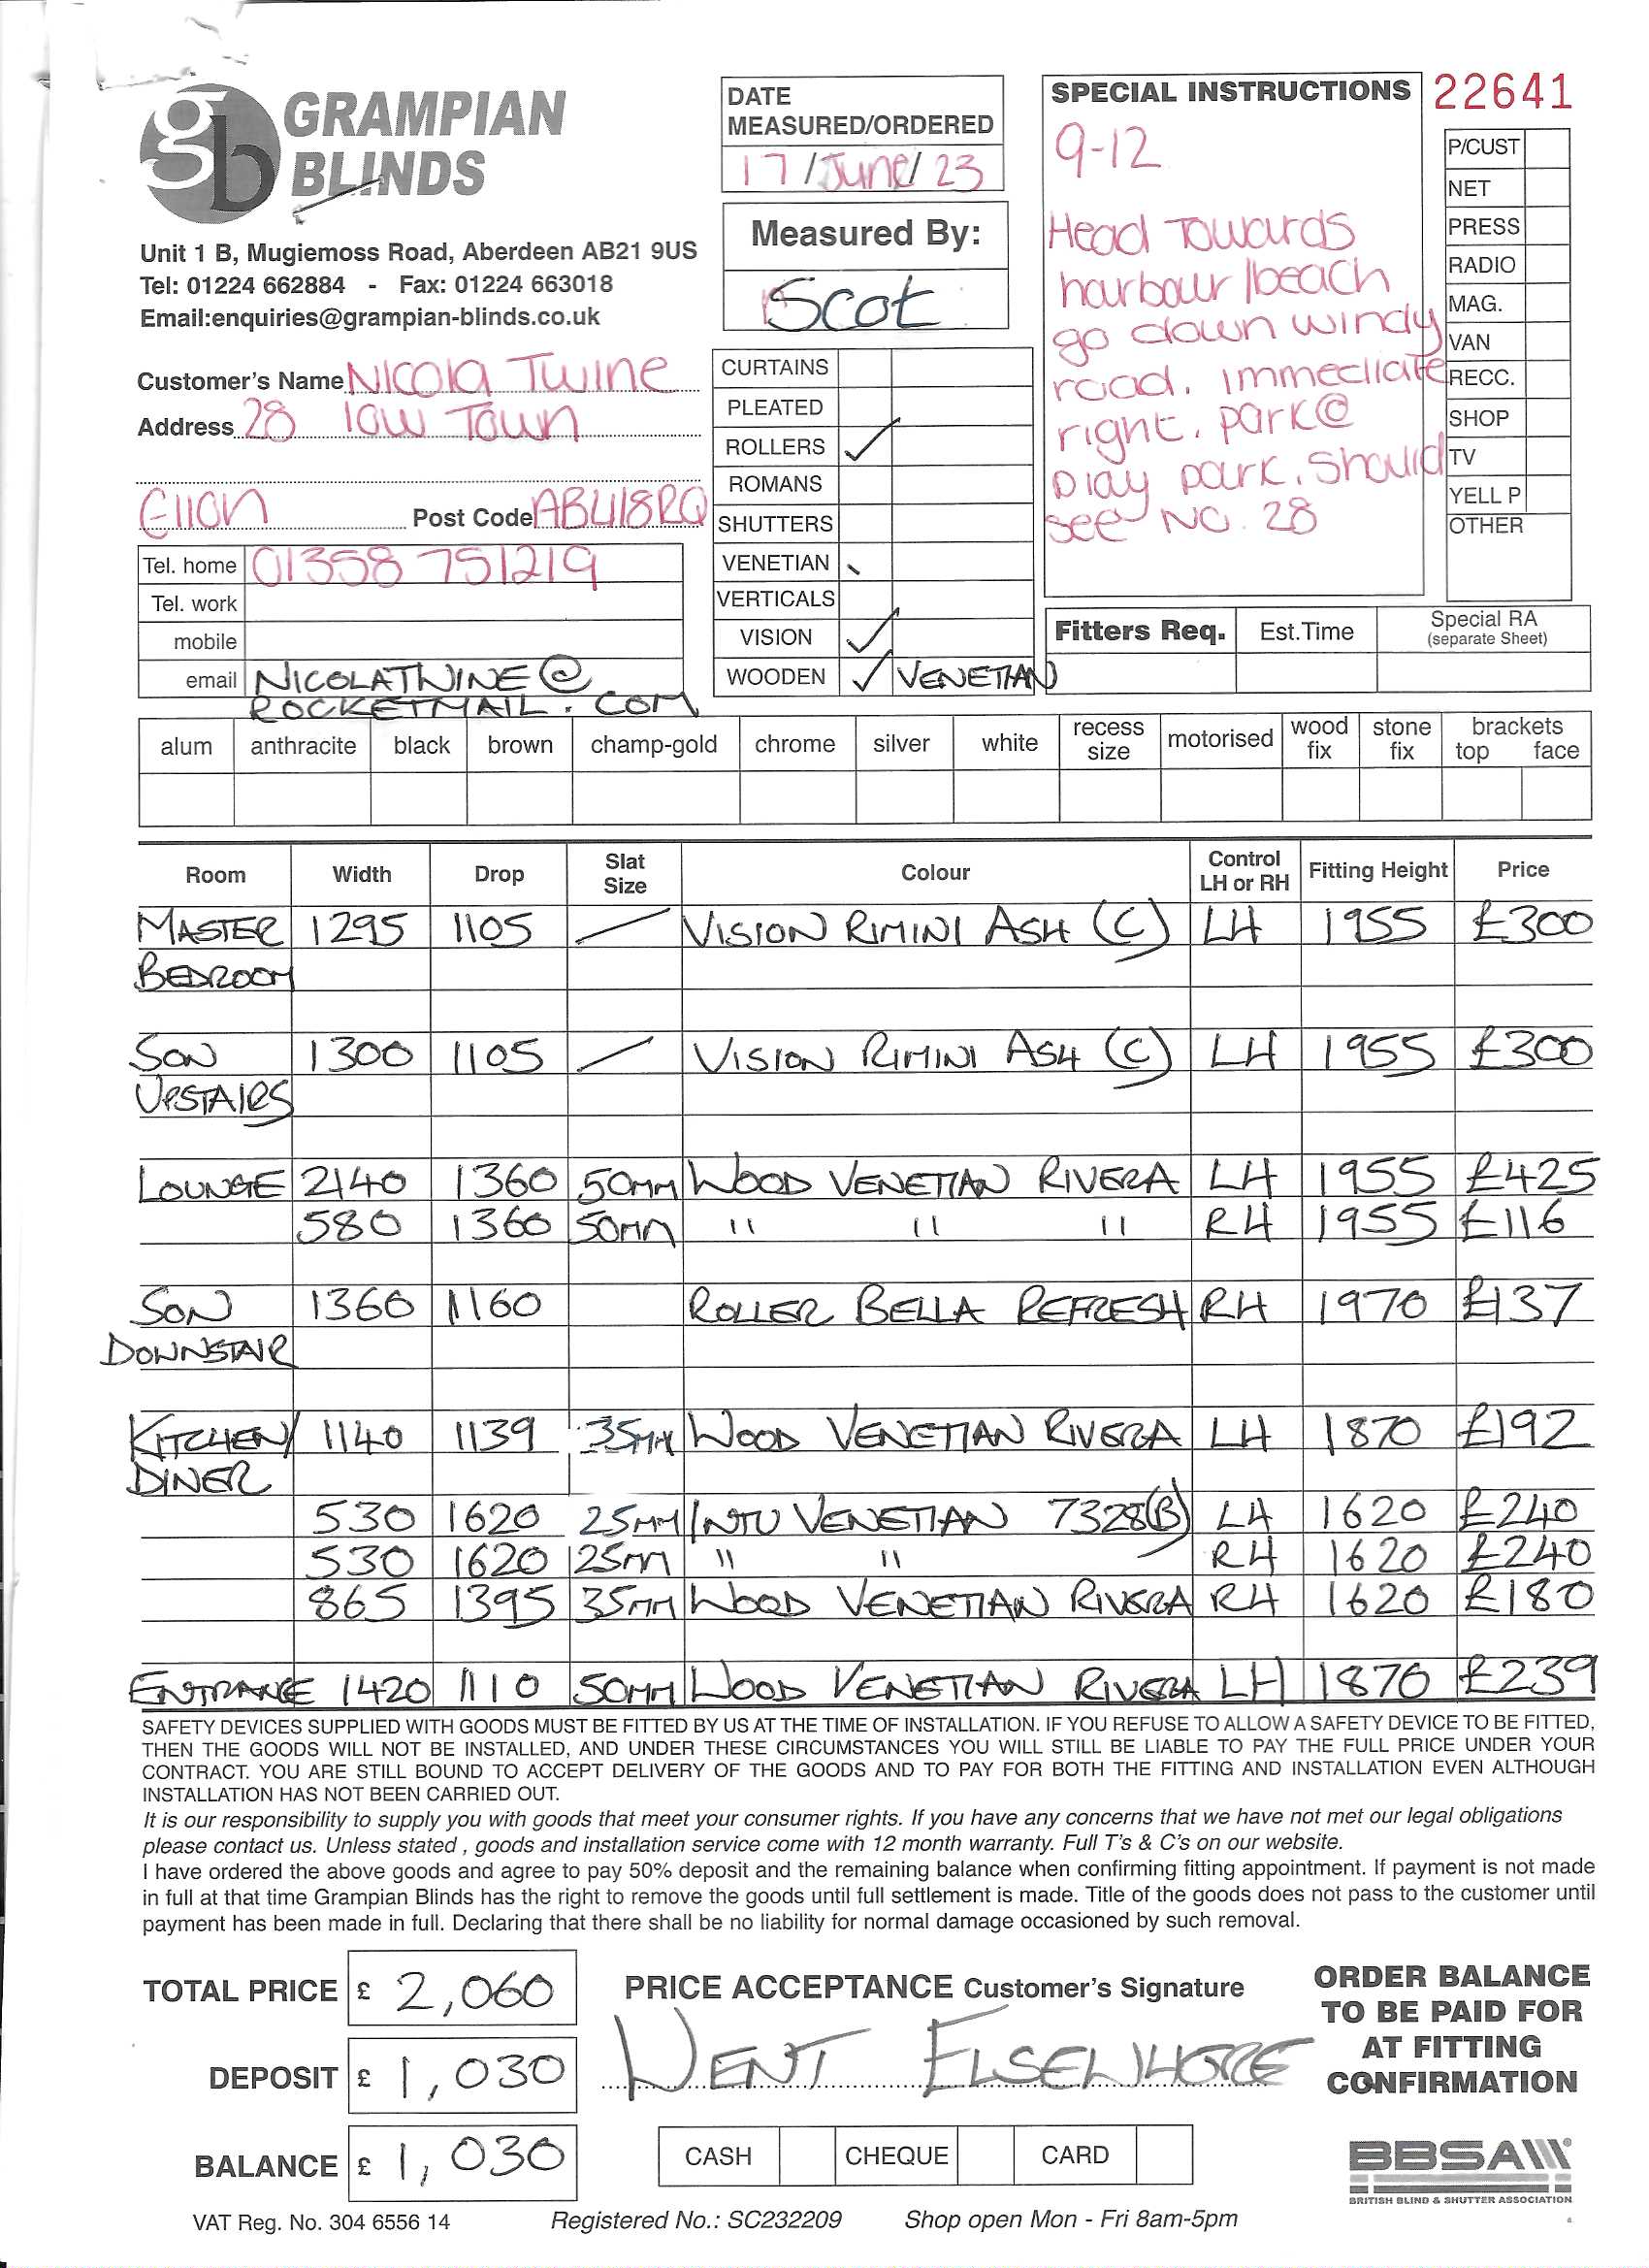 gb GRAMPIAN BLINDS
Unit 1 B, Mugiemoss Road, Aberdeen AB21 9US
Tel: 01224 662884 - Fax: 01224 663018
Email:enquiries@grampian-blinds.co.uk
Customer's Name Nicola Twine
Address 28 low Town
Ellon Post Code AB418RQ
Tel. home 01358 751219
Tel. work
mobile
email NICOLATWINE@
ROCKETMAIL.COM
DATE
MEASURED/ORDERED
17/June/23
Measured By:
Scot
CURTAINS
PLEATED
ROLLERS ✓
ROMANS
SHUTTERS
VENETIAN
VERTICALS
VISION ✓
WOODEN ✓ VENETIAN
SPECIAL INSTRUCTIONS
9-12
Head Towards
harbour/beach
go down windy
road. immediate
right. park@
play park. should
see NO. 28
22641
P/CUST
NET
PRESS
RADIO
MAG.
VAN
RECC.
SHOP
TV
YELL P
OTHER
Fitters Req. Est.Time Special RA
(separate Sheet)
alum anthracite black brown champ-gold chrome silver white recess size motorised wood fix stone fix brackets top face
Room Width Drop Slat Size Colour Control LH or RH Fitting Height Price
MASTER 1295 1105 / VISION RIMINI ASH (C) LH 1955 £300
BEDROOM
SON 1300 1105 / VISION RIMINI ASH (C) LH 1955 £300
UPSTAIRS
LOUNGE 2140 1360 50MM WOOD VENETIAN RIVERA LH 1955 £425
580 1360 50MM " " " RH 1955 £116
SON 1360 1160 ROLLER BELLA REFRESH RH 1970 £137
DOWNSTAIR
KITCHEN/ 1140 1139 35MM WOOD VENETIAN RIVERA LH 1870 £192
DINER
530 1620 25MM INTU VENETIAN 7328(B) LH 1620 £240
530 1620 25MM " " RH 1620 £240
865 1395 35MM WOOD VENETIAN RIVERA RH 1620 £180
ENTRANCE 1420 1110 50MM WOOD VENETIAN RIVERA LH 1870 £239
SAFETY DEVICES SUPPLIED WITH GOODS MUST BE FITTED BY US AT THE TIME OF INSTALLATION. IF YOU REFUSE TO ALLOW A SAFETY DEVICE TO BE FITTED,
THEN THE GOODS WILL NOT BE INSTALLED, AND UNDER THESE CIRCUMSTANCES YOU WILL STILL BE LIABLE TO PAY THE FULL PRICE UNDER YOUR
CONTRACT. YOU ARE STILL BOUND TO ACCEPT DELIVERY OF THE GOODS AND TO PAY FOR BOTH THE FITTING AND INSTALLATION EVEN ALTHOUGH
INSTALLATION HAS NOT BEEN CARRIED OUT.
It is our responsibility to supply you with goods that meet your consumer rights. If you have any concerns that we have not met our legal obligations
please contact us. Unless stated , goods and installation service come with 12 month warranty. Full T's & C's on our website.
I have ordered the above goods and agree to pay 50% deposit and the remaining balance when confirming fitting appointment. If payment is not made
in full at that time Grampian Blinds has the right to remove the goods until full settlement is made. Title of the goods does not pass to the customer until
payment has been made in full. Declaring that there shall be no liability for normal damage occasioned by such removal.
TOTAL PRICE £ 2,060
DEPOSIT £ 1,030
BALANCE £ 1,030
PRICE ACCEPTANCE Customer's Signature
WENT ELSEWHERE
CASH CHEQUE CARD
ORDER BALANCE
TO BE PAID FOR
AT FITTING
CONFIRMATION
BBSA
BRITISH BLIND & SHUTTER ASSOCIATION
VAT Reg. No. 304 6556 14 Registered No.: SC232209 Shop open Mon - Fri 8am-5pm